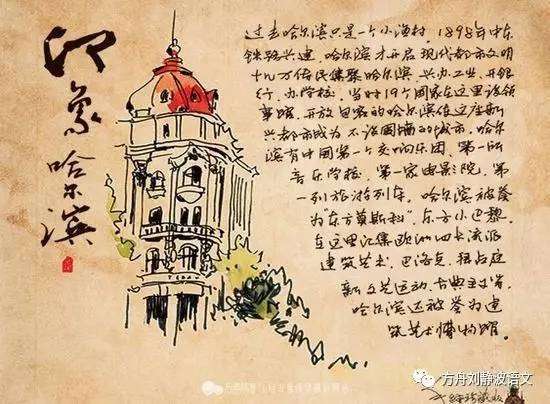 印象
哈尔滨
过去哈尔滨只是一个小渔村，1898年中东
铁路兴建，哈尔滨才开启现代都市文明
十几万侨民集聚哈尔滨，兴办工业、开银
行、办学校，当时19个国家在这里设领
事馆，开放包容的哈尔滨使这座新
兴都市成为不设围墙的城市，哈尔
滨有中国第一个交响乐团、第一所
音乐学校、第一家电影院，第
一列旅游列车。哈尔滨被誉
为“东方莫斯科”，东方小巴黎，
在这里汇集欧洲四大流派
建筑艺术，巴洛克、拜占庭
新文艺运动、古典主义等，
哈尔滨还被誉为建
筑艺术博物馆。
方舟刘静波语文